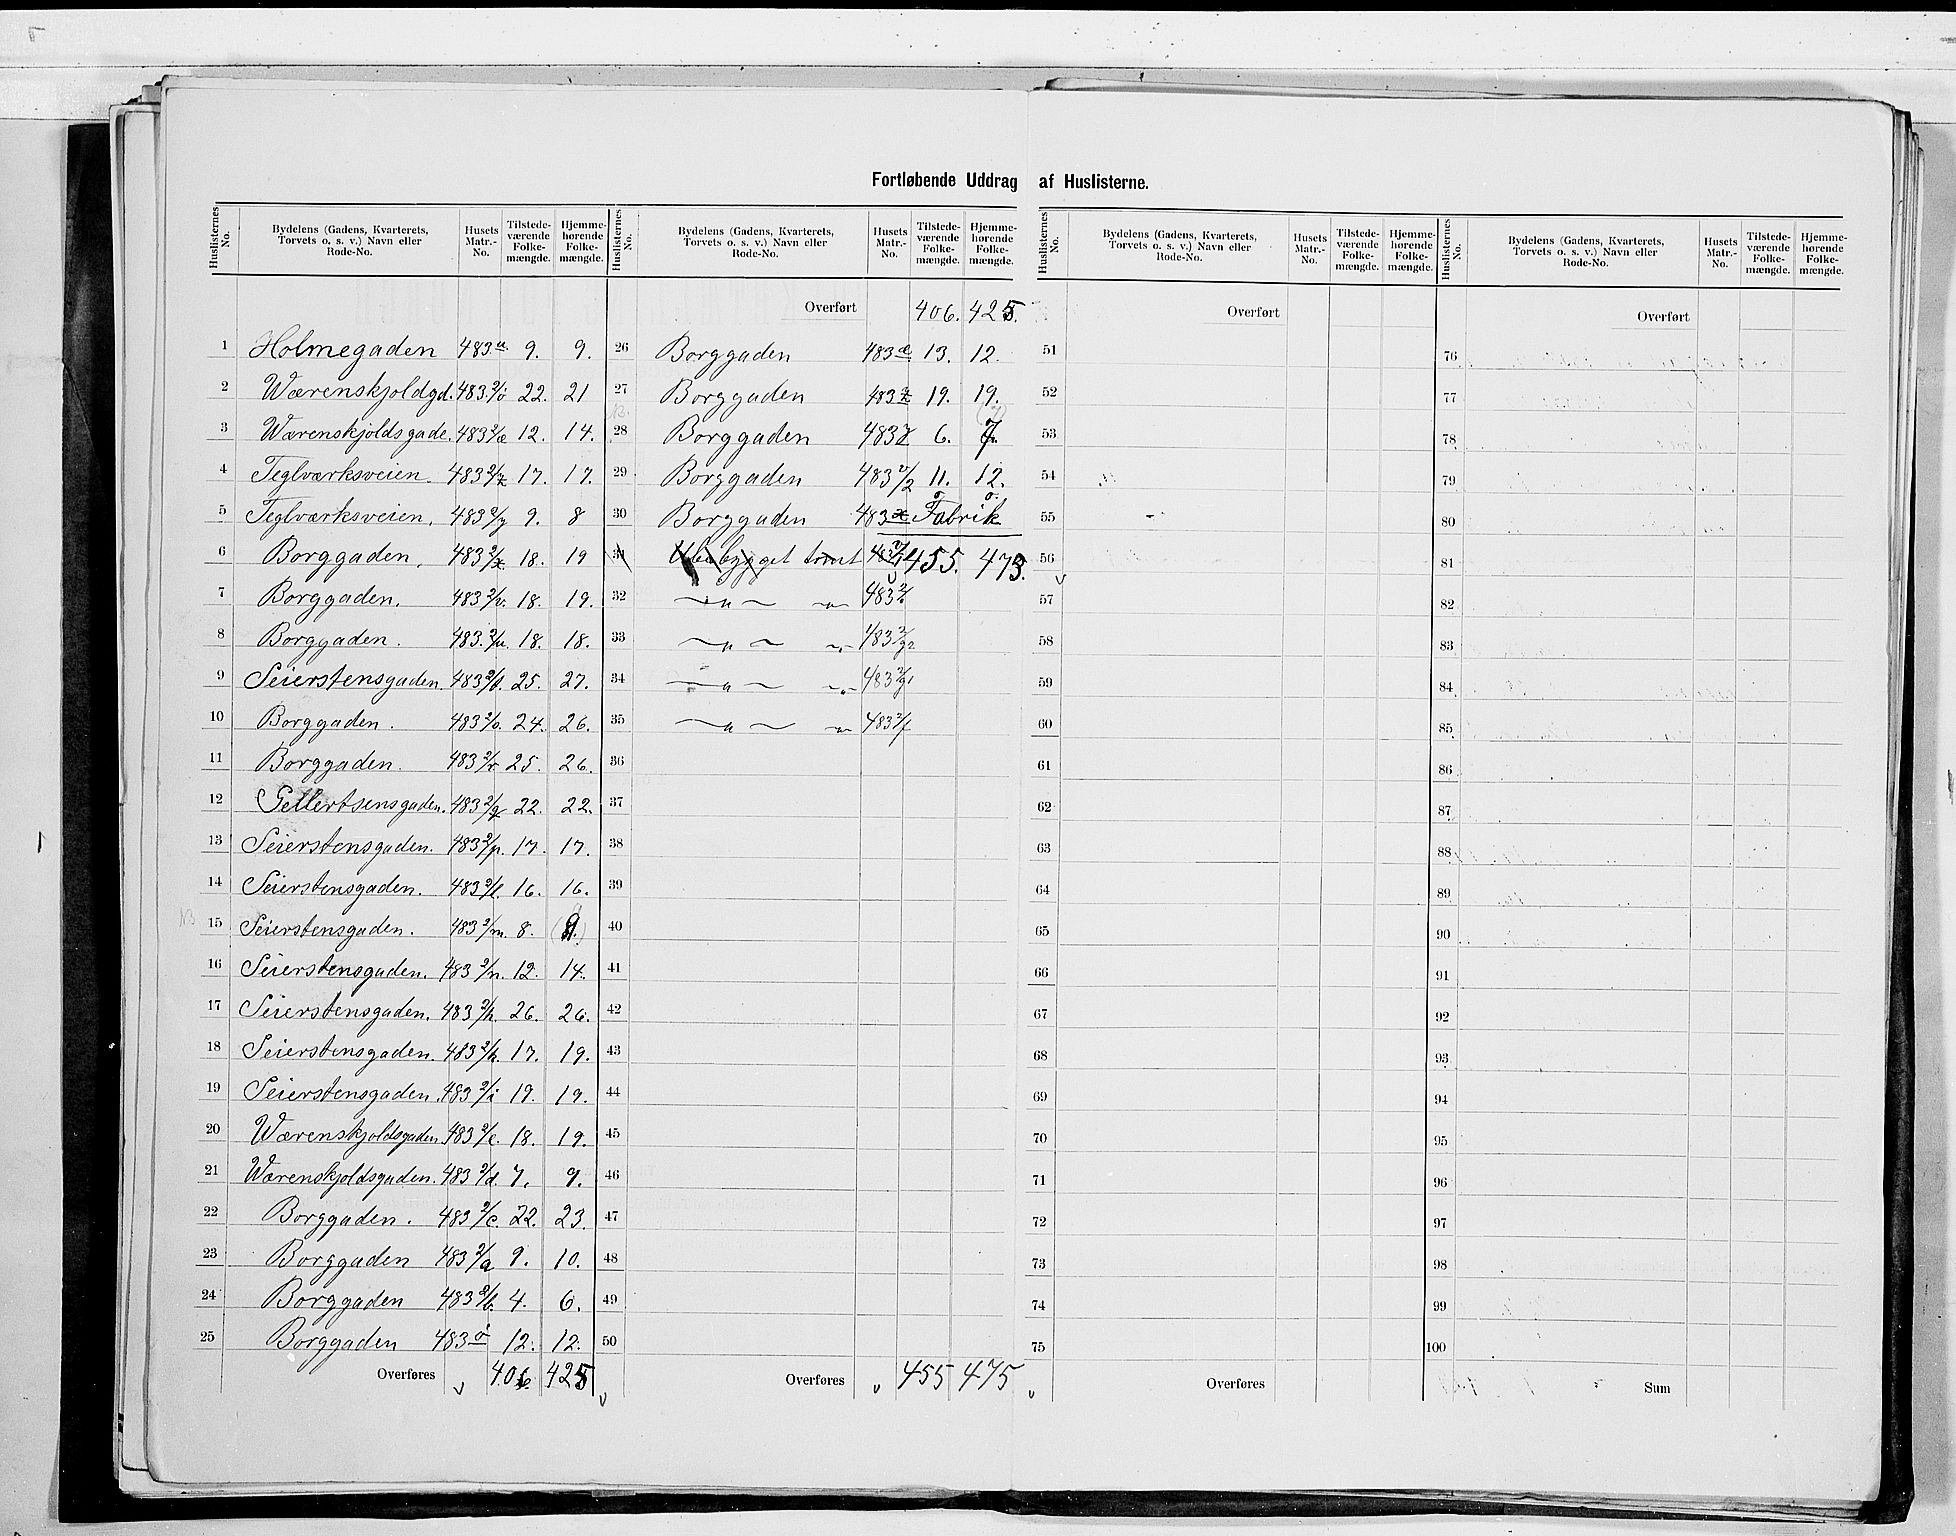 Fortløbende Uddrag af Huslisterne.
Huslisternes No. Bydelens (Gadens, Kvarterets, Torvets o. s. v.) Navn eller Rode-No. Husets Matr.-No. Tilstede-værende Folke-mængde. Hjemme-hørende Folke-mængde.
1 Holmegaden 483 u. 9. 9.
2 Wærenskjoldgd. 483. 2/ö 22. 21
3 Wærenskjoldsgade. 483 2/æ 12. 14.
4 Teglværksveien. 483 2/z 17. 17.
5 Teglværksveien. 483 2/y 9. 8
6 Borggaden. 483 2/x 18. 19
7 Borggaden. 483 2/v. 18. 19.
8 Borggaden. 483. 2/u. 18. 18.
9 Seierstensgaden. 483 2/t. 25. 27.
10 Borggaden. 483 2/s. 24. 26.
11 Borggaden. 483 2/r 25. 26.
12 Gellertsensgaden. 483 2/q 22. 22.
13 Seierstensgaden. 483 2/p. 17. 17.
14 Seierstensgaden. 483 2/l. 16. 16.
NB 15 Seierstensgaden. 483 2/m. 8. (9.)
16 Seierstensgaden. 483 2/n. 12. 14.
17 Seierstensgaden. 483 2/h. 26. 26.
18 Seierstensgaden. 483 2/k. 17. 19.
19 Seierstensgaden. 483 2/i 19. 19.
20 Wærenskjoldsgaden. 483 2/e. 18. 19.
21 Wærenskjoldsgaden. 483 2/d. 7. 9.
22 Borggaden. 483 2/c. 22. 23.
23 Borggaden 483 2/a 9. 10.
24 Borggaden 483 2/b. 4. 6.
25 Borggaden 483 ö 12. 12.
Overføres 406 425
Huslisternes No. Bydelens (Gadens, Kvarterets, Torvets o. s. v.) Navn eller Rode-No. Husets Matr.-No. Tilstede-værende Folke-mængde. Hjemme-hørende Folke-mængde.
Overført 406. 425.
26 Borggaden 483 æ 13. 12.
27 Borggaden 483 z 19. 19.
NB. 28 Borggaden 483 y 6. 7.
29 Borggaden 483 v/2 11. 12.
30 Borggaden 483 x Fabrik
0 0.
31 Ubebygget tomt 455. 475.
32 — " — — " — 483
33 — " — — " — 483 2/g2
34 — " — — " — 483 2/g1
35 — " — — " — 483 2/f
36
37
38
39
40
41
42
43
44
45
46
47
48
49
50
Overføres 455 475
Huslisternes No. Bydelens (Gadens, Kvarterets, Torvets o. s. v.) Navn eller Rode-No. Husets Matr.-No. Tilstede-værende Folke-mængde. Hjemme-hørende Folke-mængde.
Overført
51
52
53
54
55
56
57
58
59
60
61
62
63
64
65
66
67
68
69
70
71
72
73
74
75
Overføres
Huslisternes No. Bydelens (Gadens, Kvarterets, Torvets o. s. v.) Navn eller Rode-No. Husets Matr.-No. Tilstede-værende Folke-mængde. Hjemme-hørende Folke-mængde.
Overført
76
77
78
79
80
81
82
83
84
85
86
87
88
89
90
91
92
93
94
95
96
97
98
99
100
Sum